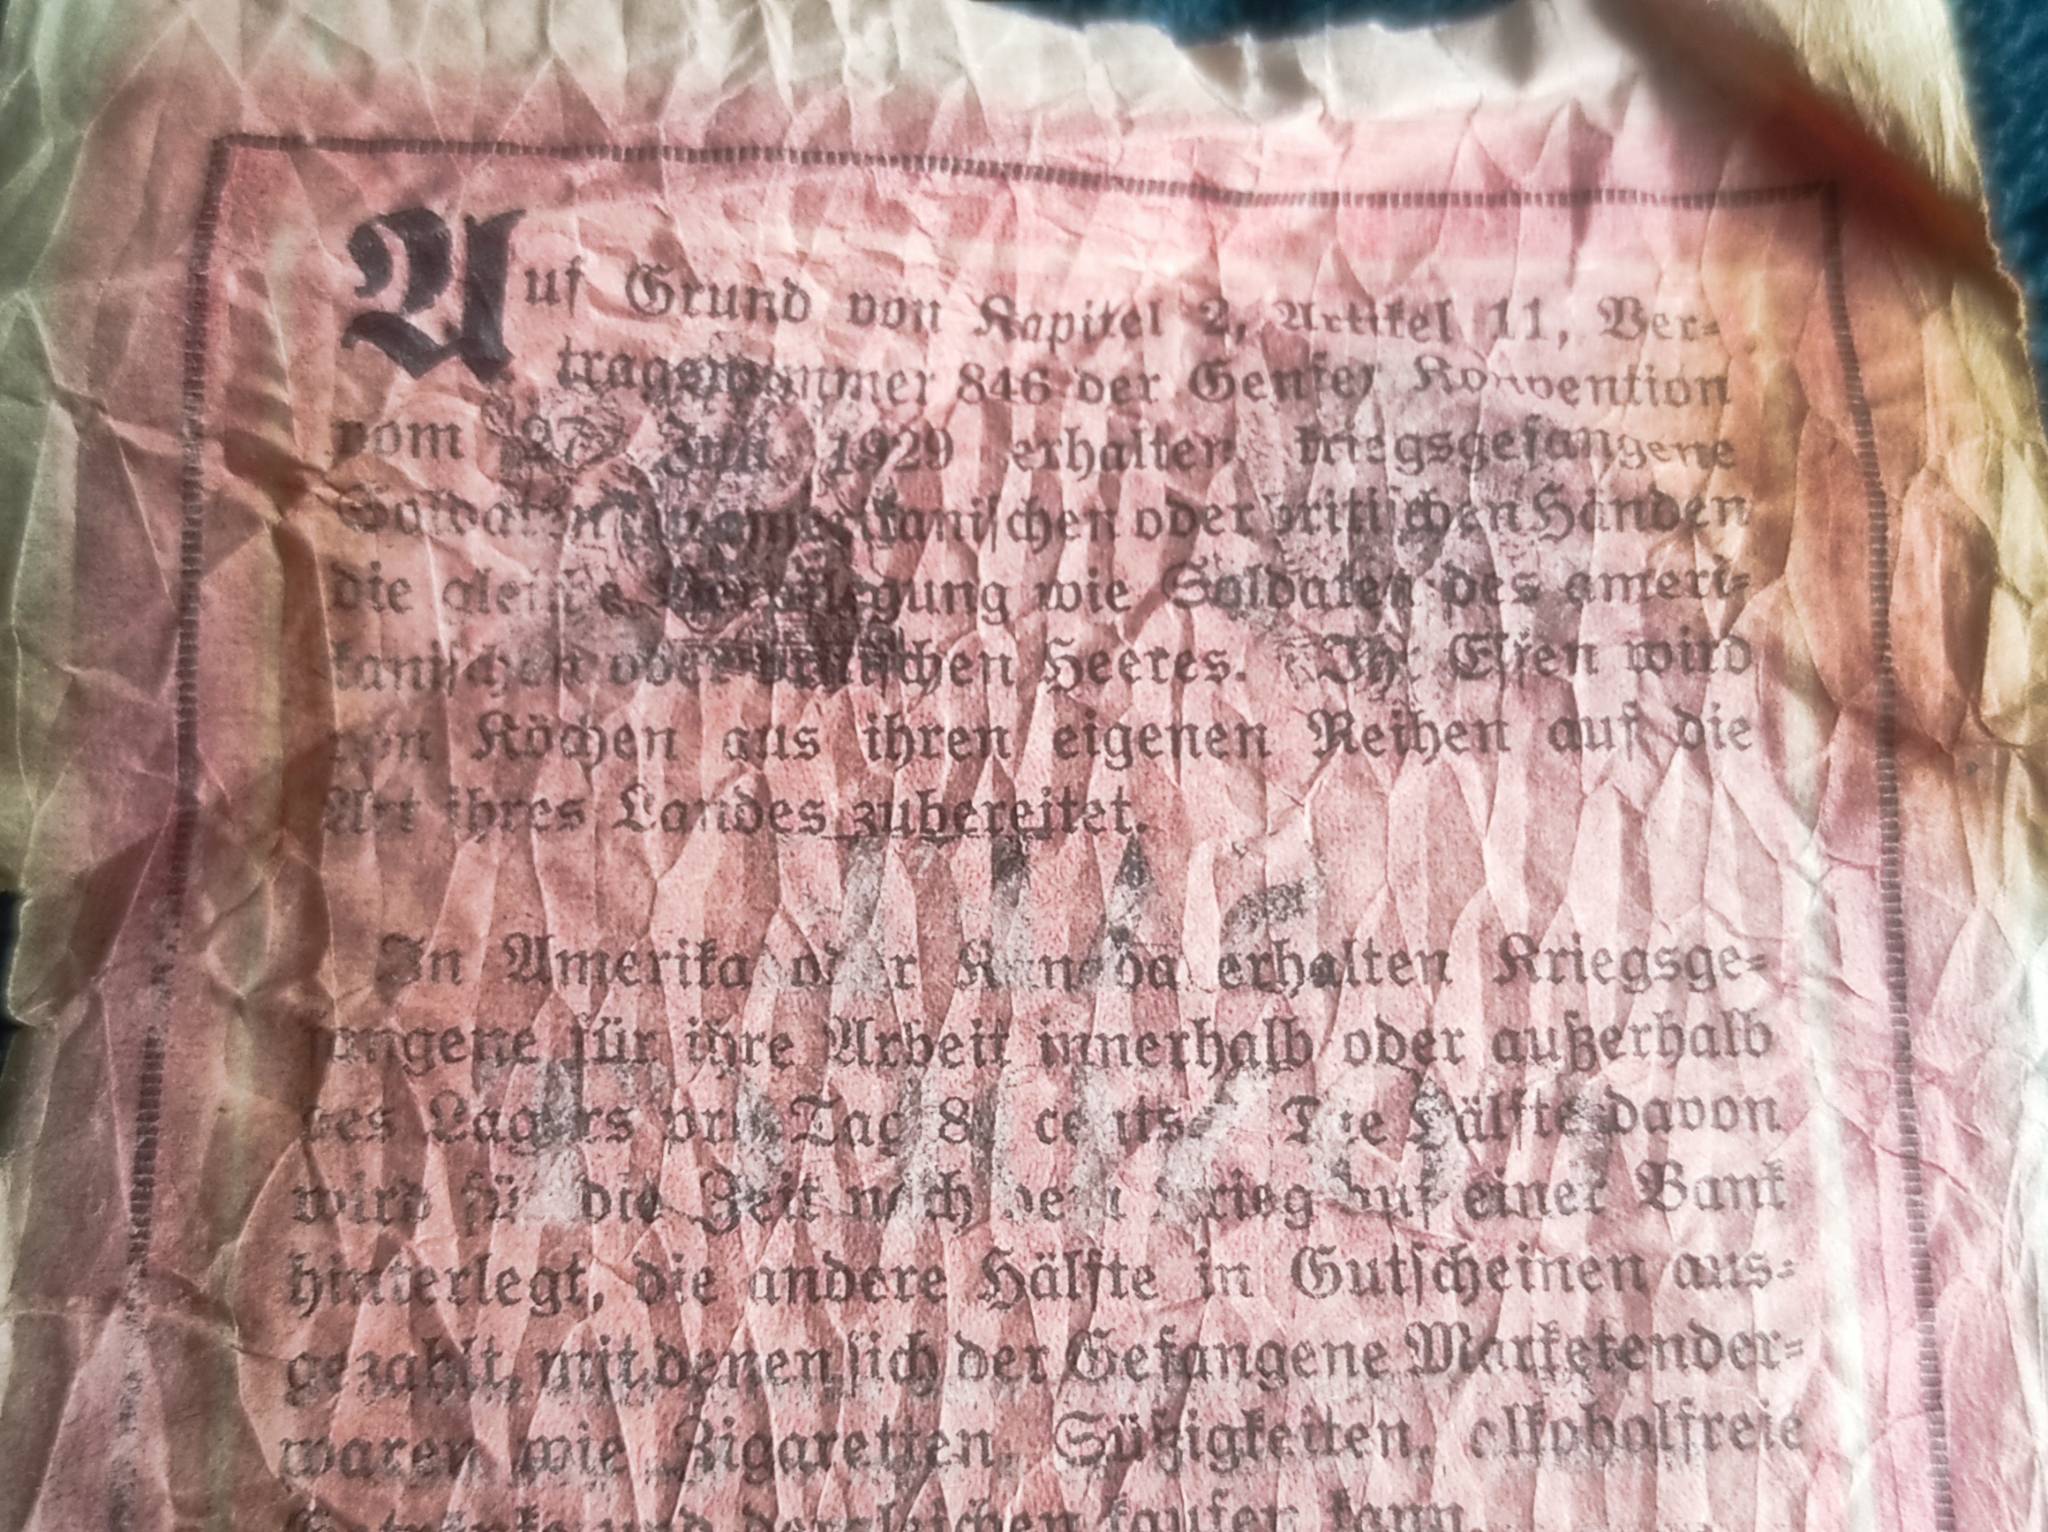 Auf Grund von Kapitel 2, Artikel 11, Ver-
tragsnummer 846 der Genfer Konvention
vom 27. Juli 1929 erhalten kriegsgefangene
Soldaten in amerikanischen oder britischen Händen
die gleiche Verpflegung wie Soldaten des ameri-
kanischen oder britischen Heeres. Ihr Essen wird
von Köchen aus ihren eigenen Reihen auf die
Art ihres Landes zubereitet.
In Amerika oder Kanada erhalten Kriegsge-
fangene für ihre Arbeit innerhalb oder außerhalb
des Lagers pro Tag 80 cents. Die Hälfte davon
wird für die Zeit nach dem Krieg auf einer Bank
hinterlegt, die andere Hälfte in Gutscheinen aus-
gezahlt, mit denen sich der Gefangene Marketender-
waren wie Zigaretten, Süßigkeiten, alkoholfreie
Getränke und dergleichen kaufen kann.